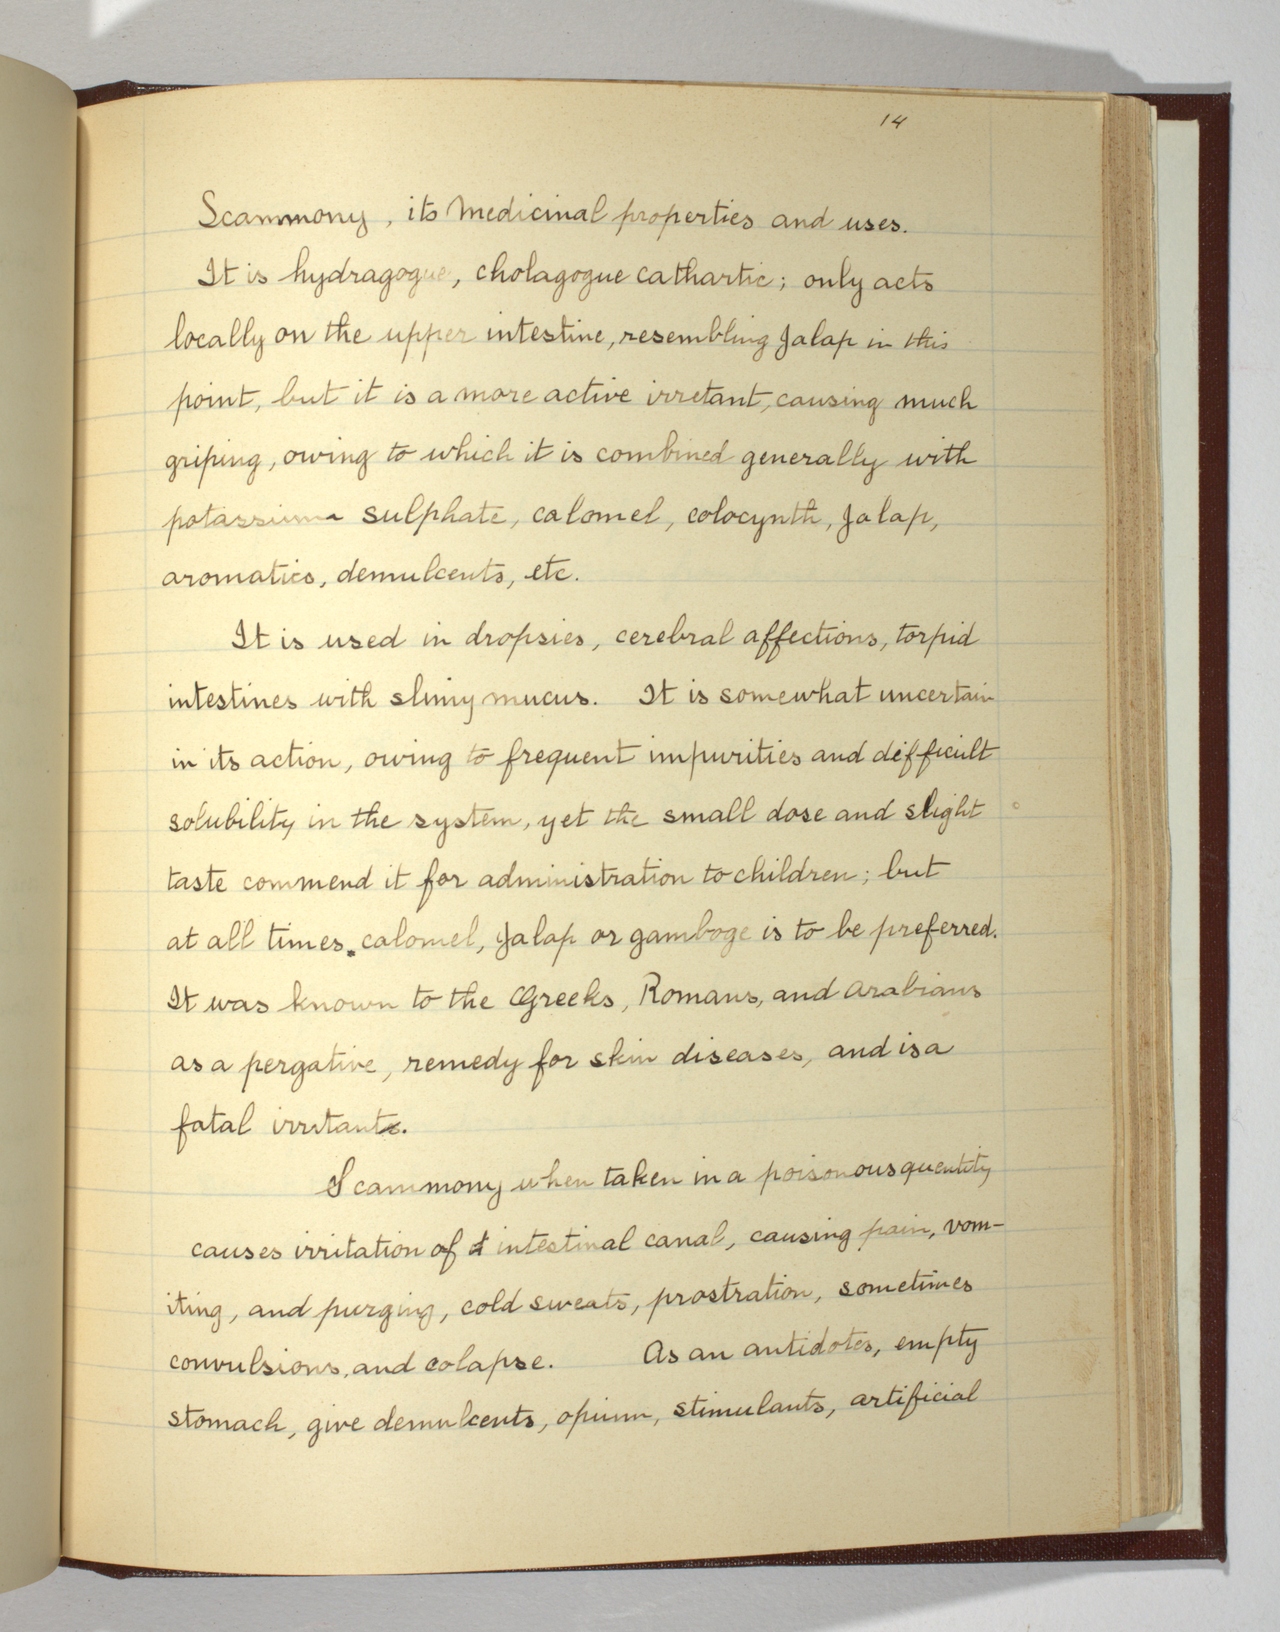 14
Scammony, its Medicinal properties and uses.
It is hydragogue, cholagogue cathartic; only acts
locally on the upper intestine, resembling Jalap in this
point, but it is a more active irretant, causing much
griping, owing to which it is combined generally with
potassium sulphate, calomel, colocynth, Jalap,
aromatics, demulcents, etc.
It is used in dropsies, cerebral affections, torpid
intestines with slimy mucus. It is somewhat uncertain
in its action, owing to frequent impurities and difficult
solubility in the system, yet the small dose and slight
taste commend it for administration to children; but
at all times. calomel, Jalap or gamboge is to be preferred.
It was known to the Greeks, Romans, and Arabians
as a pergative, remedy for skin diseases, and is a
fatal irritant.
Scammony when taken in a poisonous quentity
causes irritation of intestinal canal, causing pain, vom-
iting, and purging, cold sweats, prostration, sometimes
convulsions, and colapse. As an antidotes, empty
stomach, give demulcents, opium, stimulants, artificial